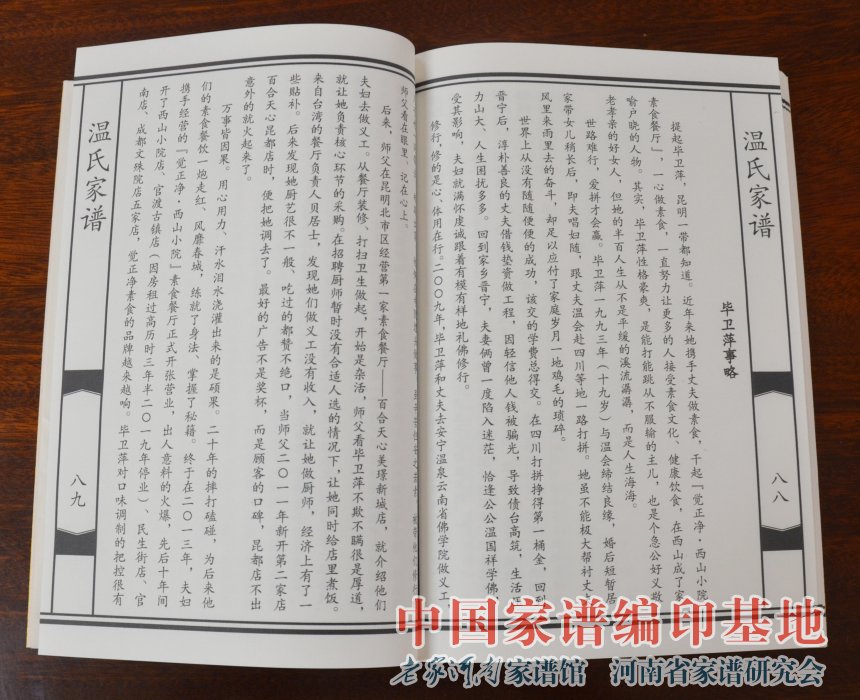 温氏家谱
八八
毕卫萍事略
提起毕卫萍，昆明一带都知道。近年来她携手丈夫做素食，干起『觉正净·西山小院
素食餐厅』，一心做素食，一直努力让更多的人接受素食文化、健康饮食，在西山成了家
喻户晓的人物。其实，毕卫萍性格豪爽，是能打能跳从不服输的主儿，也是个急公好义敬
老孝亲的好女人，但她的半百人生从不是平缓的溪流潺潺，而是人生海海。
世路难行，爱拼才会赢。毕卫萍一九九三年（十九岁）与温会缔结良缘，婚后短暂居
家带女儿稍长后，即夫唱妇随，跟丈夫温会赴四川等地一路打拼。她虽不能极大帮衬丈夫
风里来雨里去的奋斗，却足以应付了家庭岁月一地鸡毛的琐碎。
世界上从没有随随便便的成功，该交的学费总得交。在四川打拼挣得第一桶金，回到
晋宁后，淳朴善良的丈夫借钱垫资做工程，因轻信他人钱被骗光，导致债台高筑，生活压
力山大、人生困扰多多。回到家乡晋宁，夫妻俩曾一度陷入迷茫，恰逢公公温国祥学佛，
受其影响，夫妇就满怀虔诚跟着有模有样地礼佛修行。
修行，修的是心、体用在行。二〇〇九年，毕卫萍和丈夫去安宁温泉云南省佛学院做义工，
师父看在眼里、记在心上。
后来，师父在昆明北市区经营第一家素食餐厅——百合天心美璟新城店，就介绍他们
夫妇去做义工。从餐厅装修、打扫卫生做起，开始是杂活，师父看毕卫萍不欺不瞒很是厚道，
就让她负责核心环节的采购。在招聘厨师暂时没有合适人选的情况下，让她同时给店里煮饭。
来自台湾的餐厅负责人贝居士，发现她们做义工没有收入，就让她做厨师，经济上有了一
些贴补。后来发现她厨艺很不一般、吃过的都赞不绝口，当师父二〇一一年新开第二家店
百合天心昆都店时，便把她调去了。最好的广告不是奖杯，而是顾客的口碑，昆都店不出
意外的就火起来了。
万事皆因果。用心用力、汗水泪水浇灌出来的是硕果。二十年的摔打磕碰，为后来他
们的素食餐饮一炮走红、风靡春城，练就了身法、掌握了秘籍。终于在二〇一三年，夫妇
携手经营的『觉正净·西山小院』素食餐厅正式开张营业，出人意料的火爆，先后十年间
开了西山小院店、官渡古镇店（因房租过高历时三年半二〇一九年停业）、民生街店、官
南店、成都文殊院店五家店，觉正净素食的品牌越来越响。毕卫萍对口味调制的把控很有
温氏家谱
八九
中国家谱编印基地
老家河南家谱馆 河南省家谱研究会